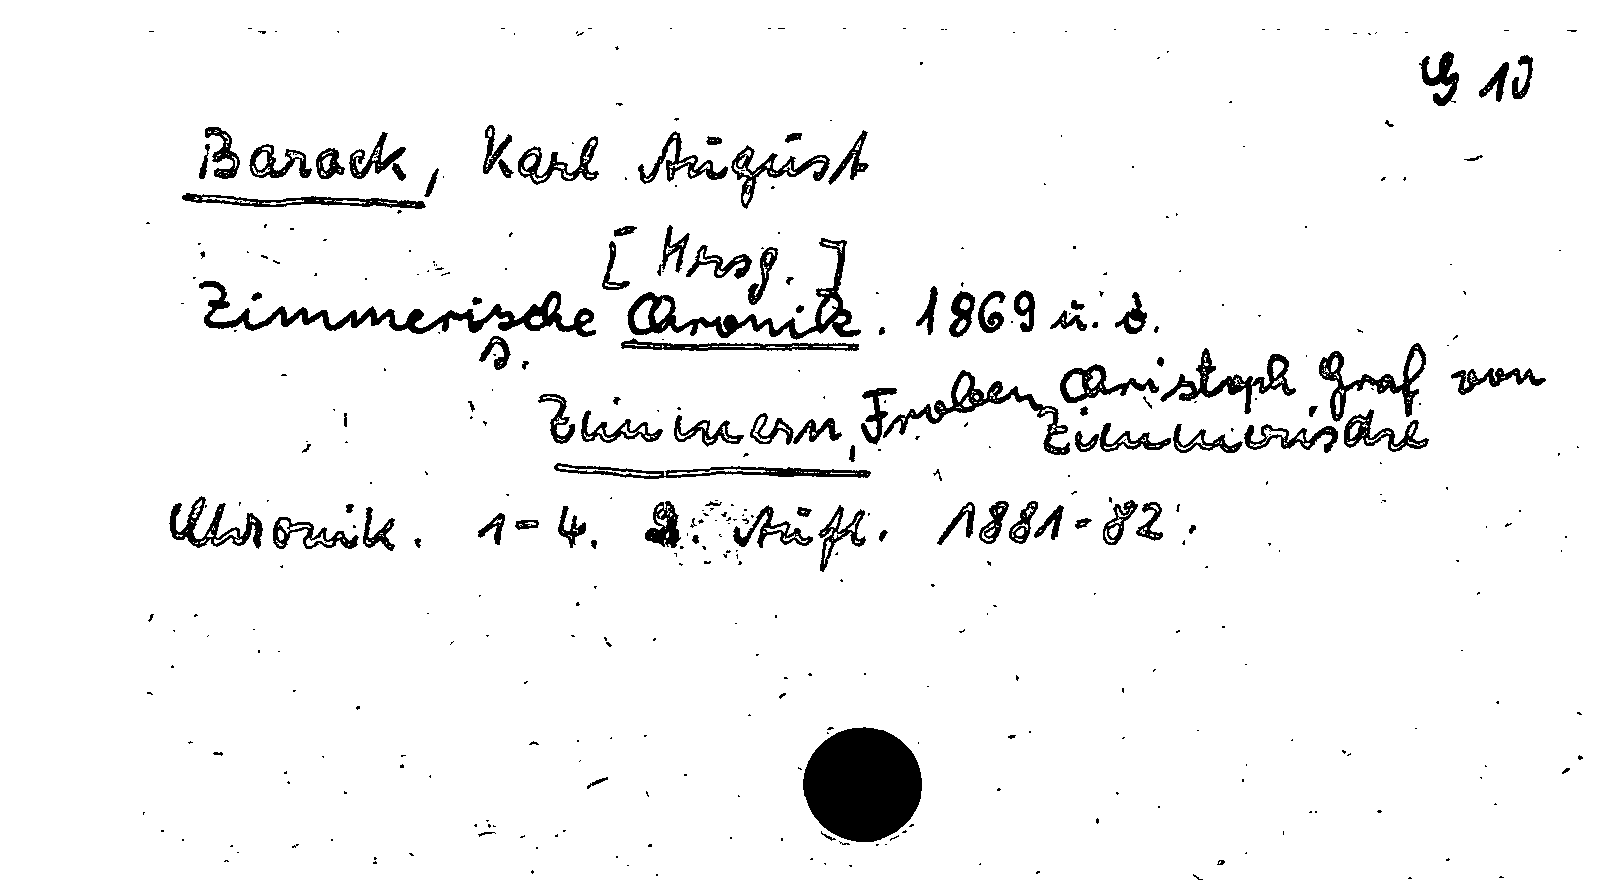 G 10
Barack, Karl August
[Hrsg.]
Zimmerische Chronik. 1869 u. ö.
s.
Zimmern, Froben Christoph Graf von
Zimmerische
Chronik. 1-4. 2. Aufl. 1881-82.